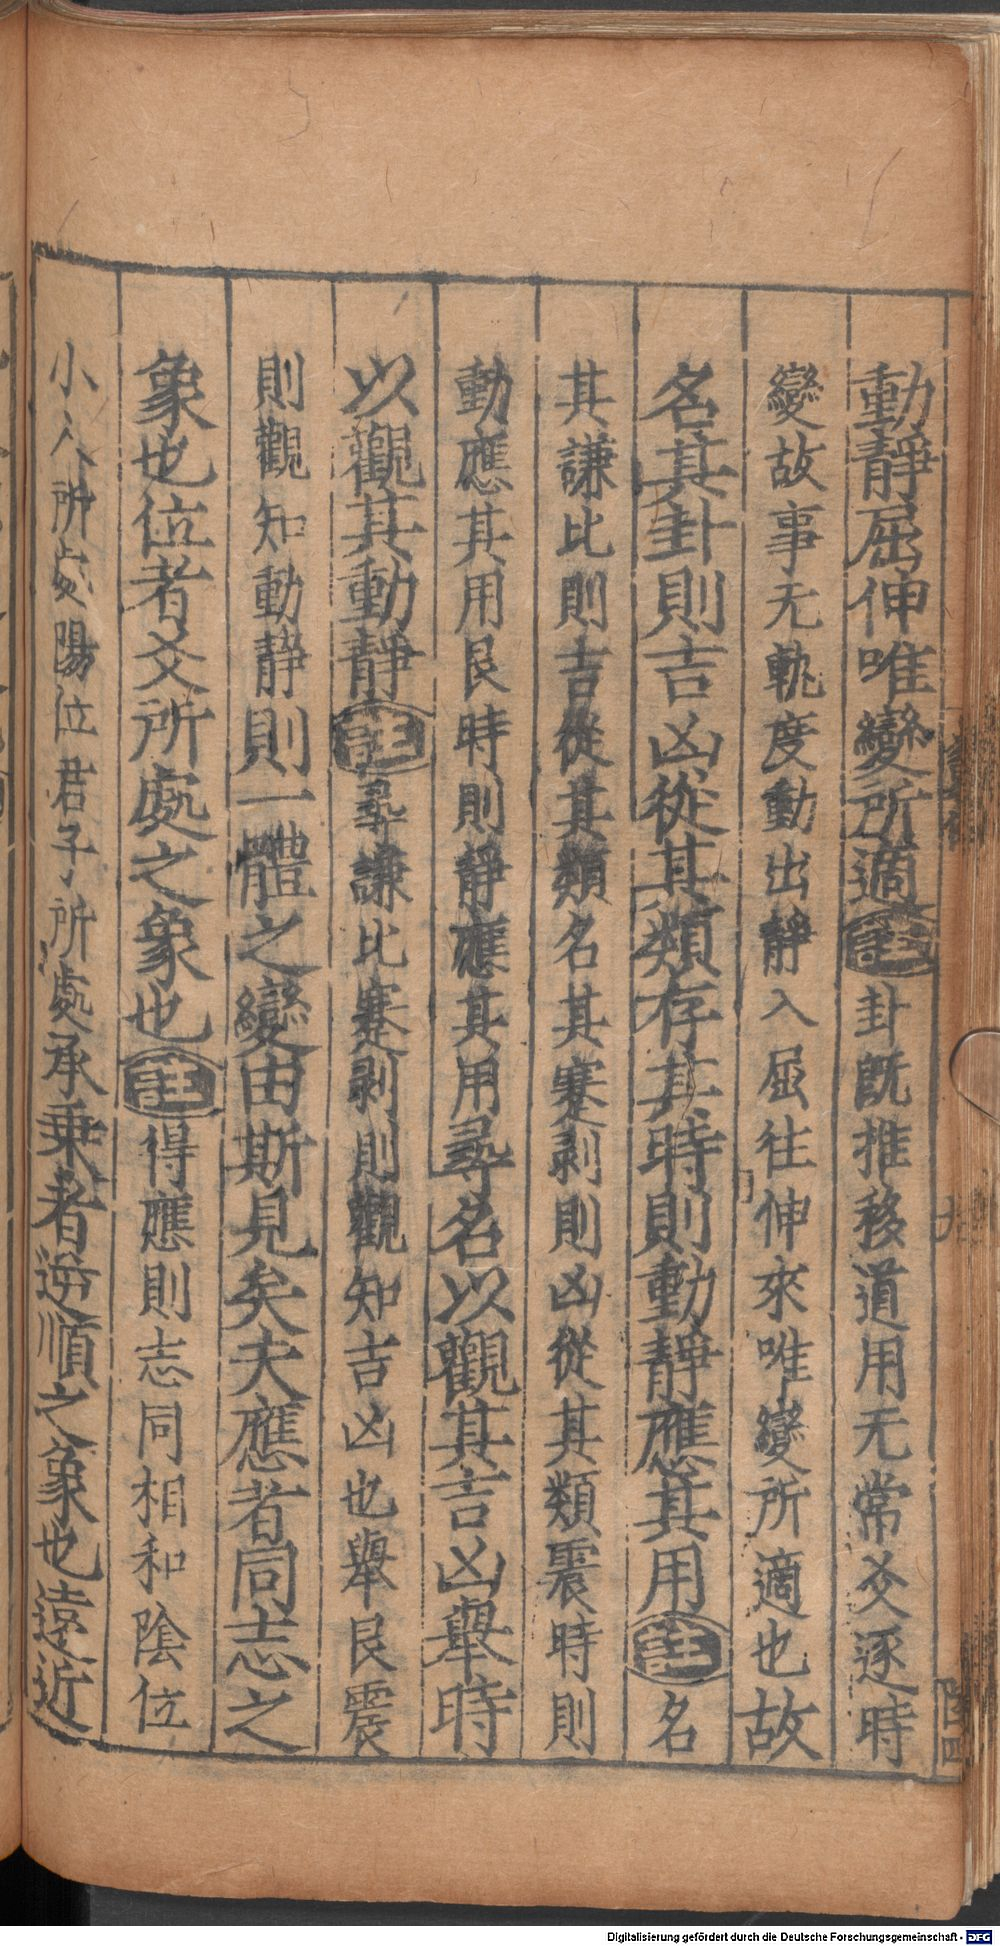 動靜屈伸唯變所適註卦旣推移道用无常爻逐時
變故事无軌度動出靜入屈往伸來唯變所適也故
名其卦則吉凶從其類存其時則動靜應其用註名
其謙比則吉從其類名其蹇剥則凶從其類震時則
動應其用艮時則靜應其用尋名以觀其吉凶舉時
以觀其動靜註尋謙比蹇剥則觀知吉凶也舉艮震
則觀知動靜則一體之變由斯見矣夫應者同志之
象也位者爻所處之象也註得應則志同相和陰位
小人所处陽位君子所處承乘者逆順之象也遠近
Digitalisierung gefördert durch die Deutsche Forschungsgemeinschaft - DFG